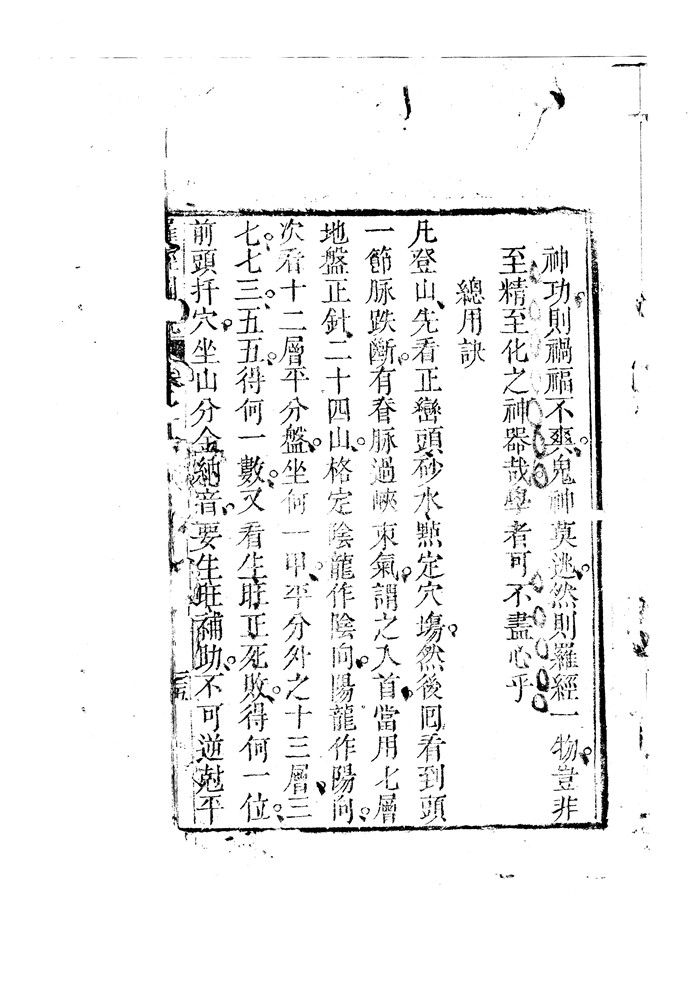 神功則禍福不爽鬼神莫逃然則羅經一物豈非
至精至化之神器哉學者可不盡心乎
總用訣
凡登山先看正巒頭砂水㸃定穴塲然後囘看到頭
一節脉跌斷有脊脉過峽束氣謂之入首當用七層
地盤正針二十四山格定陰龍作陰向陽龍作陽向
次看十二層平分盤坐何一甲平分外之十三層三
七七三五五得何一數又看生旺正死敗得何一位
前頭扦穴坐山分金納音要生旺補助不可逆尅平
羅經